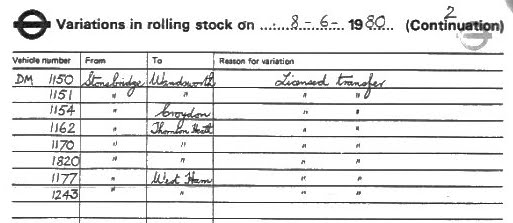 Variations in rolling stock on ....: 8-6- 1980. (Continuation) 2
Vehicle number From To Reason for variation
DM 1150 Stonebridge Wandsworth Licensed transfer
1151 " " " "
1154 " Croydon " "
1162 " Thornton Heath " "
1170 " " " "
1820 " " " "
1177 " West Ham " "
1243 " " " "